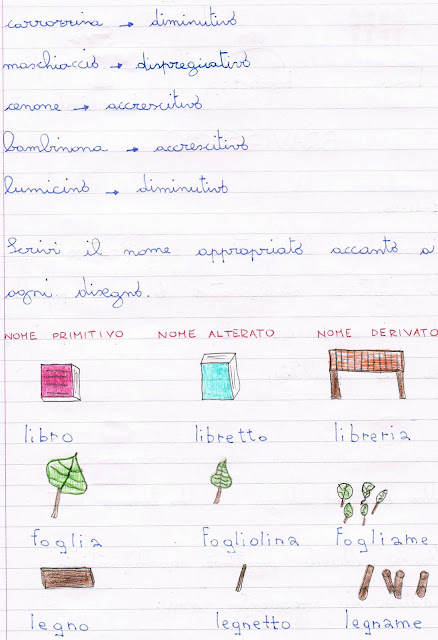 carrozzina → diminutivo
maschiaccio → dispregiativo
cenone → accrescitivo
bambinona → accrescitivo
lumicino → diminutivo
Scrivi il nome appropriato accanto a
ogni disegno.
NOME PRIMITIVO NOME ALTERATO NOME DERIVATO
libro libretto libreria
foglia fogliolina fogliame
legno legnetto legname